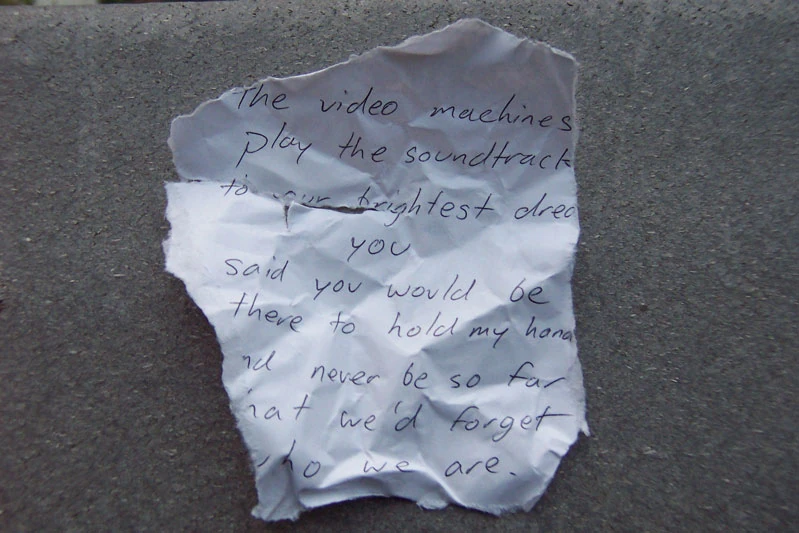 The video machines
play the soundtrack
to our brightest drea
you
said you would be
there to hold my hand
nd never be so far
hat we'd forget
who we are.